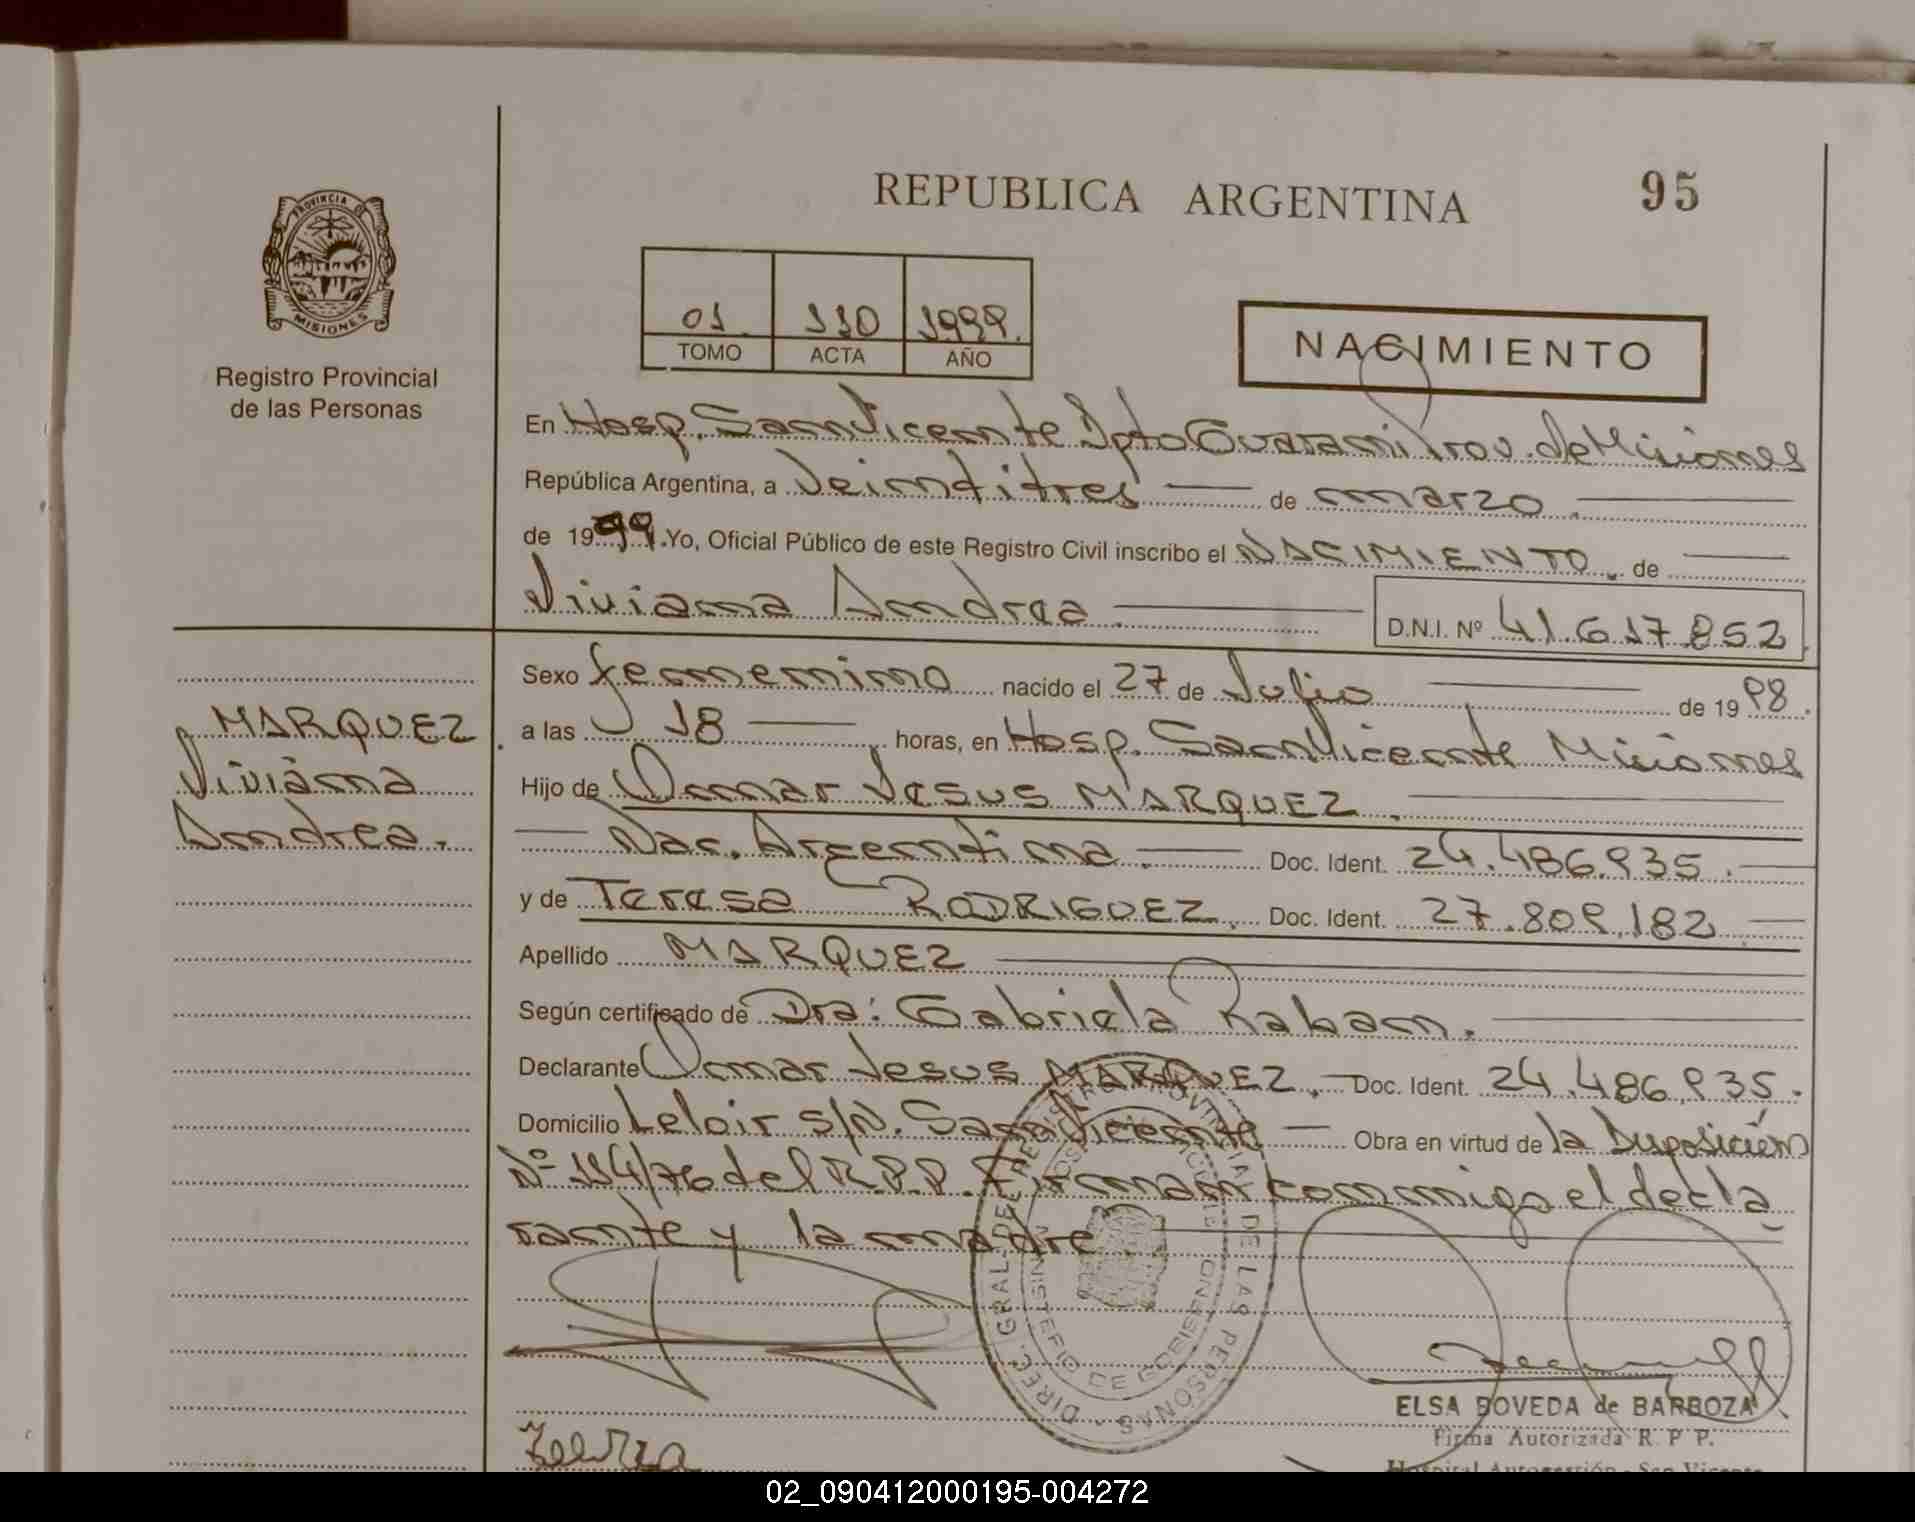 REPUBLICA ARGENTINA 95
PROVINCIA DE
MISIONES
Registro Provincial
de las Personas
01 110 1999.
TOMO ACTA AÑO
NACIMIENTO
En Hosp. San Vicente Dpto Guarani Prov. de Misiones
República Argentina, a Veintitres de marzo.
de 1999. Yo, Oficial Público de este Registro Civil inscribo el NACIMIENTO. de
Viviana Andrea.
D.N.I. Nº 41.617.852
MARQUEZ
Viviana
Andrea.
Sexo femenino nacido el 27 de Julio de 1998.
a las 18 horas, en Hosp. San Vicente Misiones
Hijo de Omar Jesus MARQUEZ.
Nac. Argentina. Doc. Ident. 24.486.935.
y de Teresa RODRIGUEZ. Doc. Ident. 27.809.182
Apellido MARQUEZ
Según certificado de Dra: Gabriela Raban.
Declarante Omar Jesus MARQUEZ. Doc. Ident. 24.486.935.
Domicilio Leloir s/N. San Vicente Obra en virtud de la Disposición
Nº 114/76 del R.P.P. Firman conmigo el decla
rante y la madre.
DIREC. GRAL. DEL REGISTRO PROVINCIAL DE LAS PERSONAS
MINISTERIO DE GOBIERNO
ELSA BOVEDA de BARBOZA
Firma Autorizada R. P. P.
Hospital Autogestión - San Vicente
02_090412000195-004272